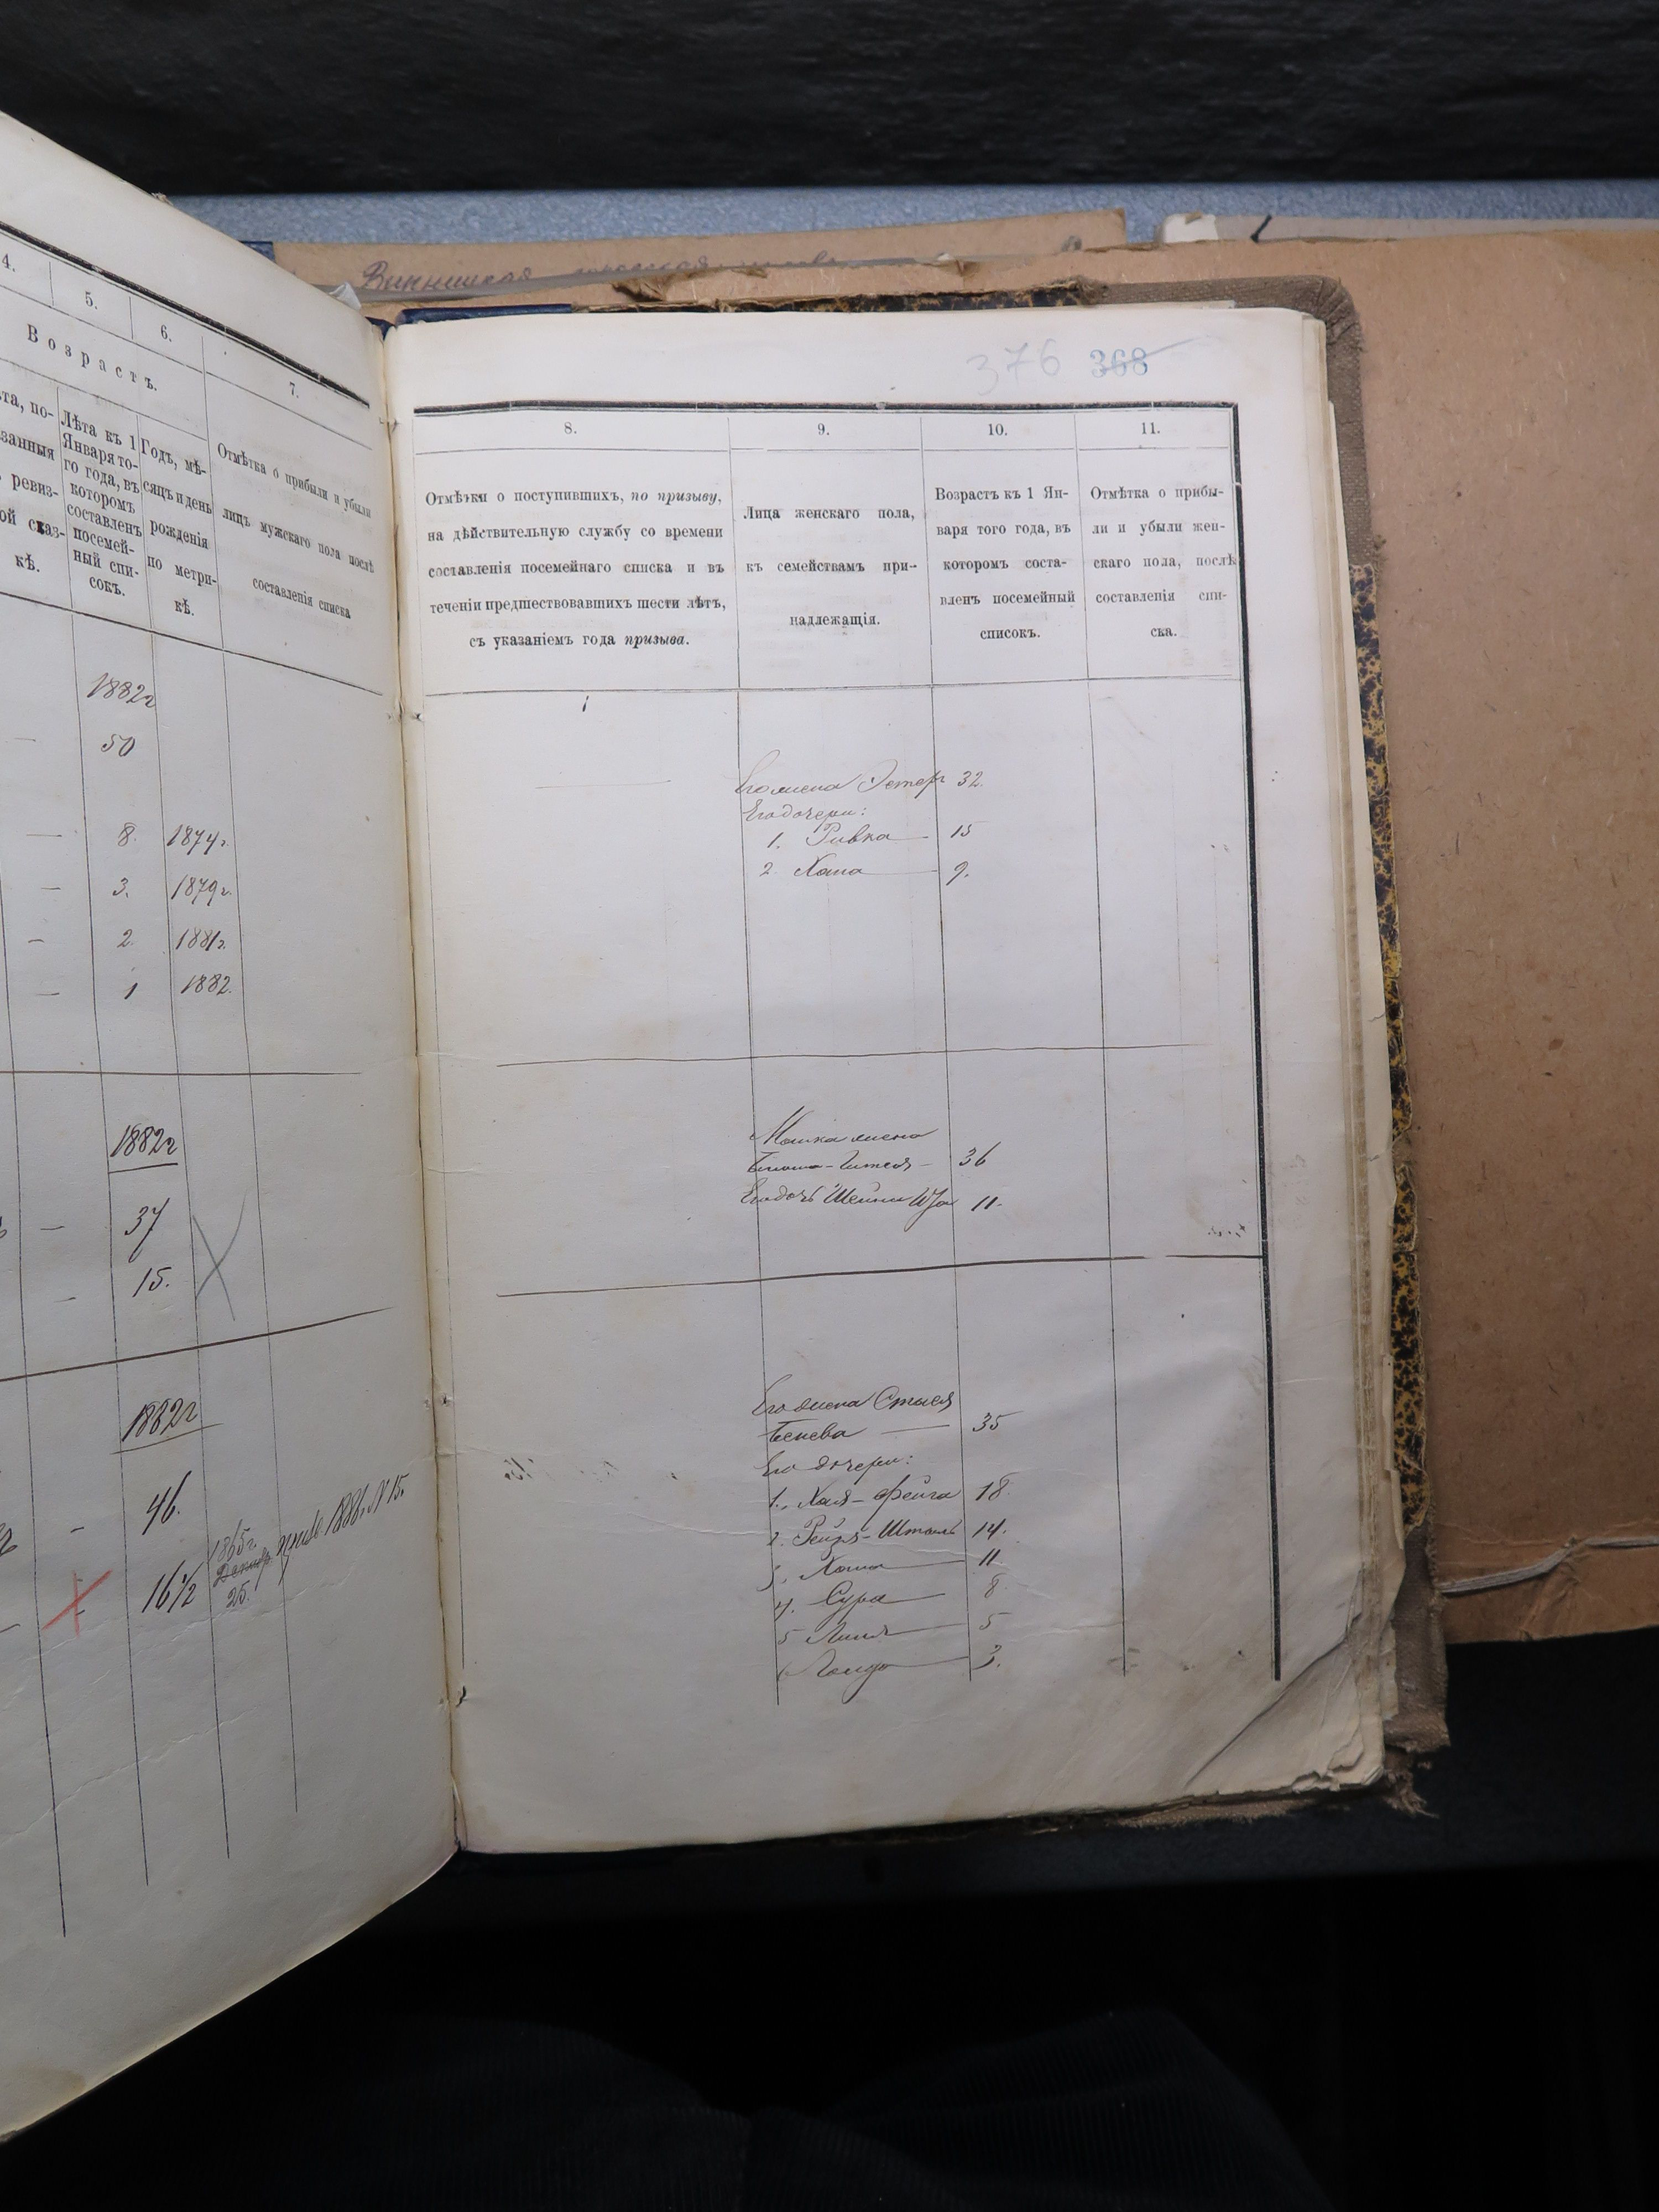 Винницкая
4.
5.
6.
7.
Возрастъ.
Лѣта къ 1
Января то-
го года, въ
которомъ
составленъ
посемей-
ный спи-
сокъ.
Годъ, мѣ-
сяцъ и день
рожденія
по метри-
кѣ.
Отмѣтка о прибыли и убыли
лицъ мужскаго пола послѣ
составленія списка
1882г
50
8. 1874г.
3. 1879г.
2. 1881г.
1 1882.
1882г
37
15.
1882г
46.
16 1/2
1865г.
Декабр.
25.
1886. N 15.
376 368
8.
9.
10.
11.
Отмѣтки о поступившихъ, по призыву,
на дѣйствительную службу со времени
составленія посемейнаго списка и въ
теченіи предшествовавшихъ шести лѣтъ,
съ указаніемъ года призыва.
Лица женскаго пола,
къ семействамъ при-
надлежащія.
Возрастъ къ 1 Ян-
варя того года, въ
которомъ соста-
вленъ посемейный
списокъ.
Отмѣтка о прибы-
ли и убыли жен-
скаго пола, послѣ
составленія спи-
ска.
Его жена Эстер 32.
Его дочери:
1. Ривка 15
2. Хана 9.
Мошка жена
36
Его дочь Шейни 11.
Его жена
35
Его дочери:
1. Хая-Фейга 18.
2. 14.
3. Хана 11
4. Сура 8
5 5
6 3.